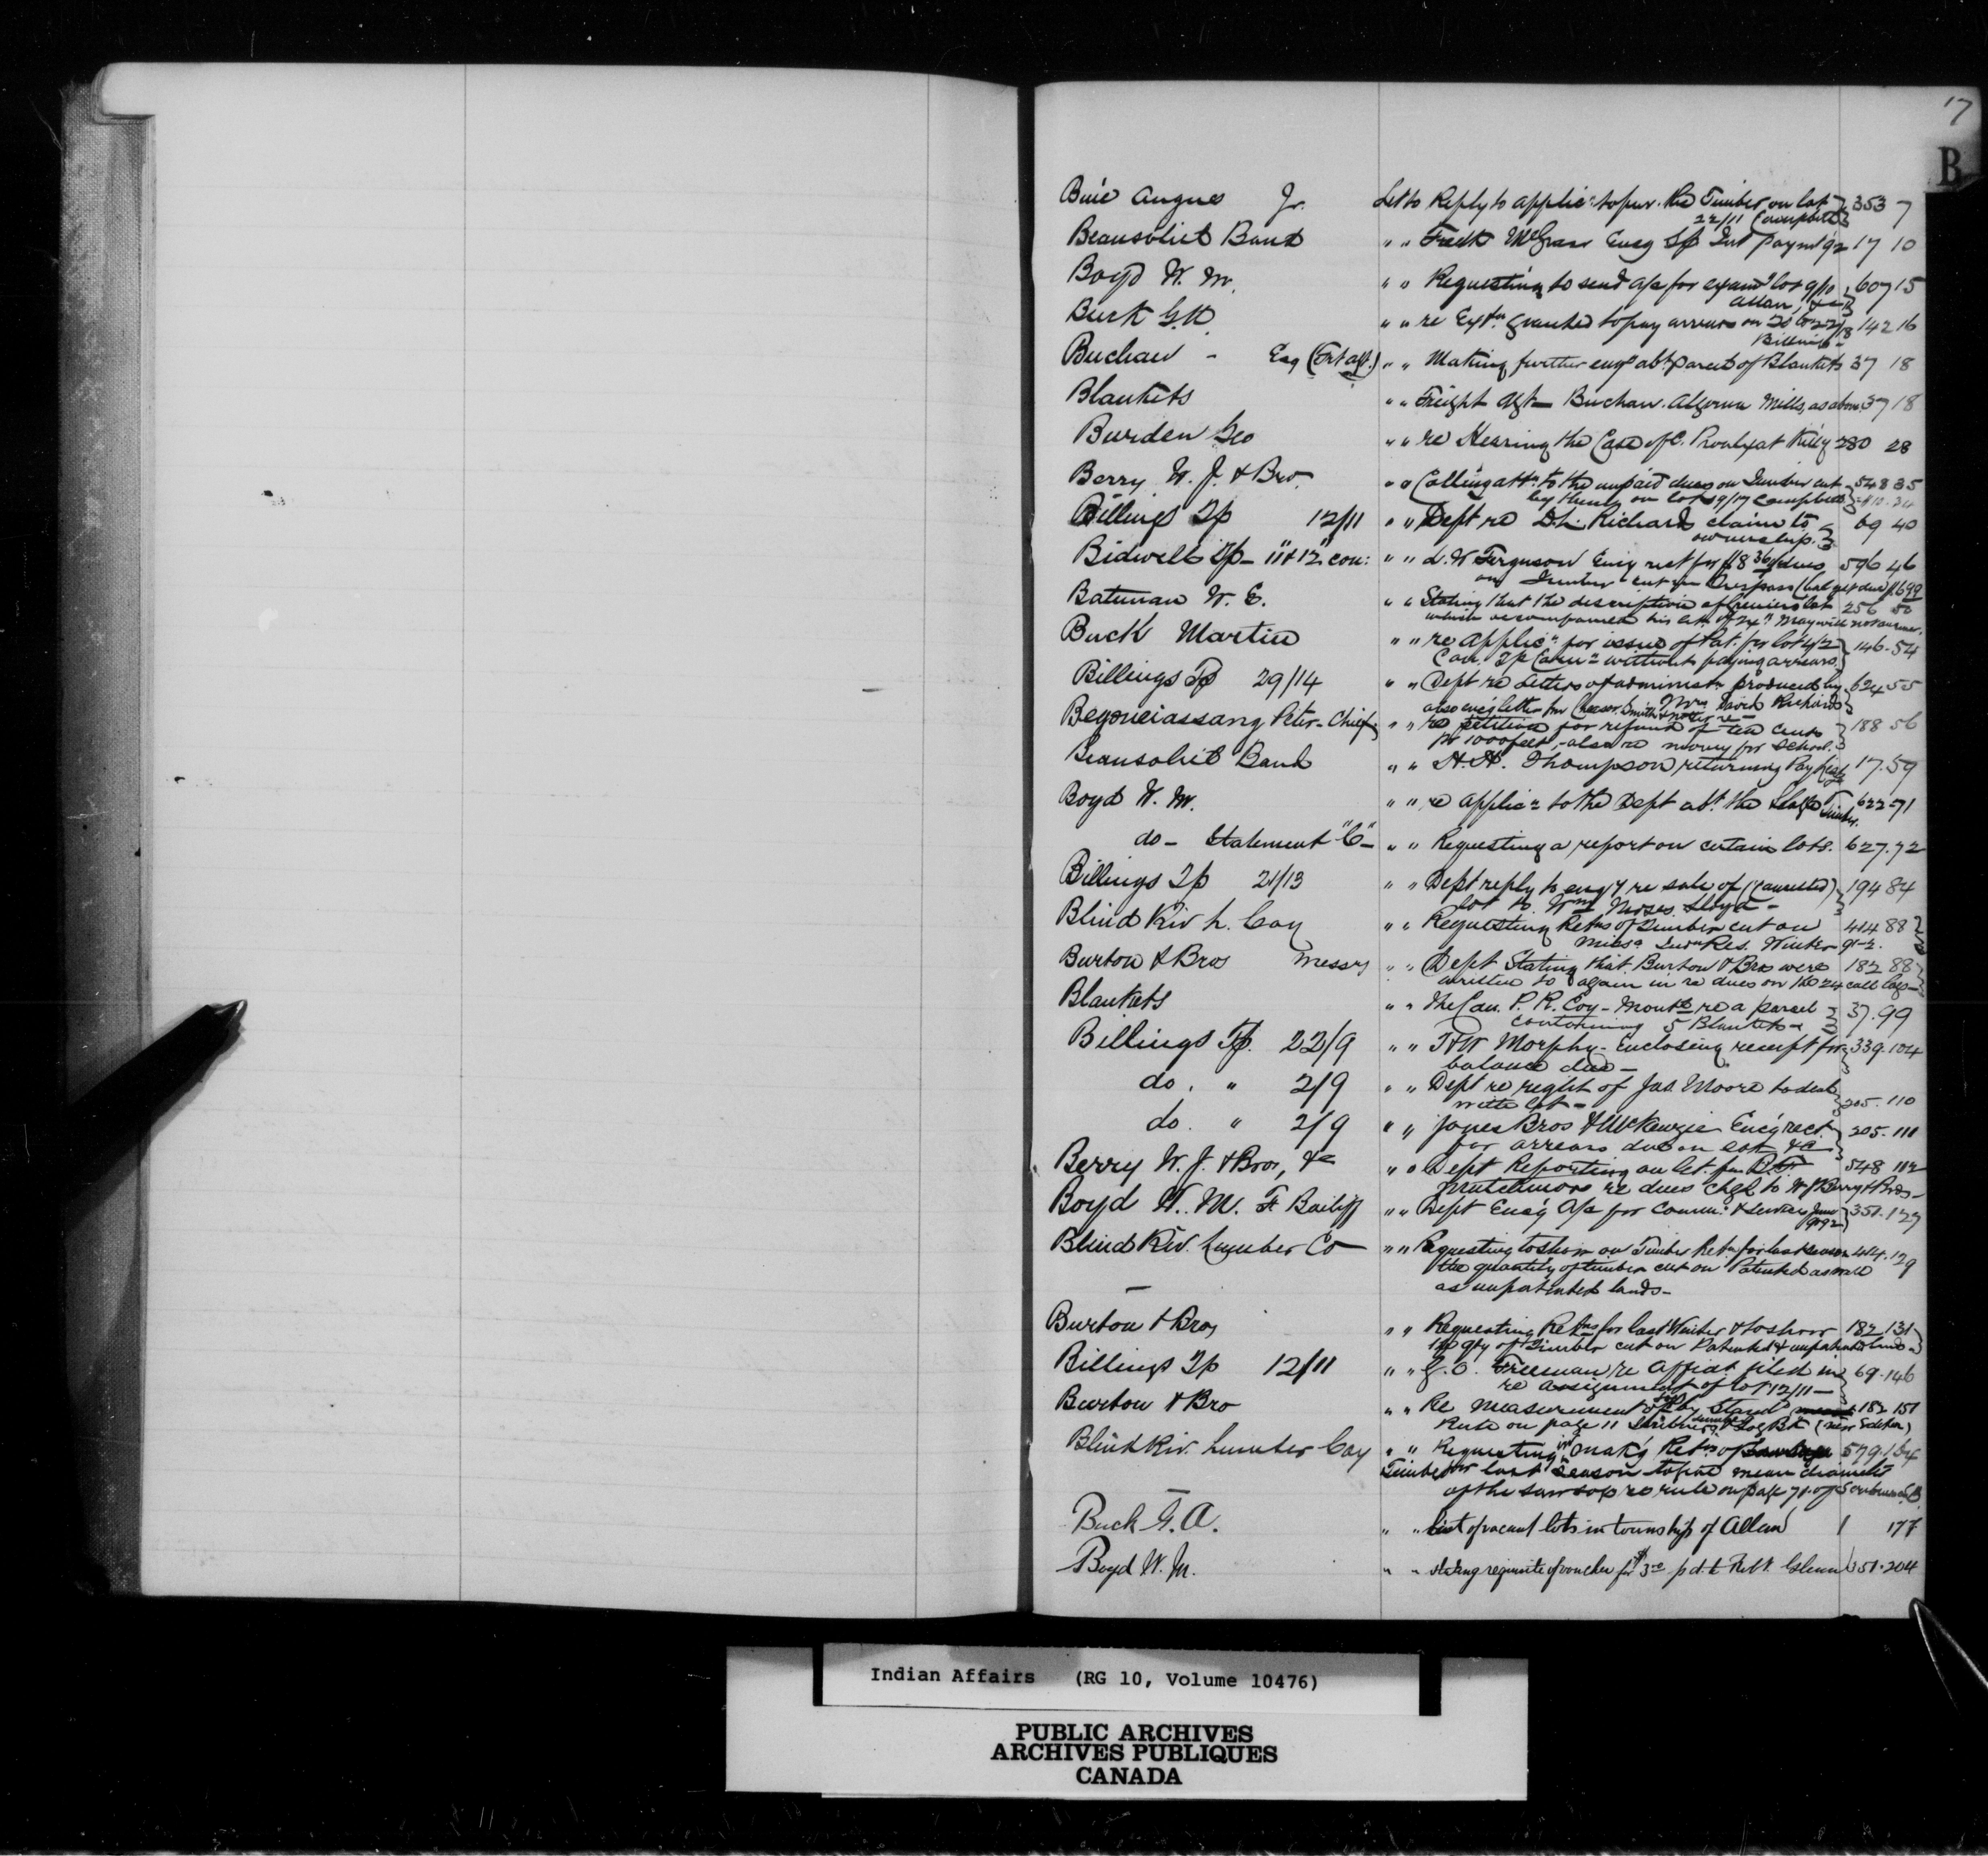 17
B
Buie Angus Jr. Let to Reply to applicn to pur. the Timber on lot 353 7
22/11 Campbell
Beausoliel Band " " Fredk McGraw Encg Sp Int paymt 92 17 10
Boyd W. M. " " Requesting to send a/c for examg lot 9/10 607 15
Allan, &c
Burk G.A. " " re Extn granted to pay arrears on 142 16
Billings
Buchan - Esq (Frt agt.) " " Making further enqy abt parcel of Blankets 37 18
Blankets " " Freight Agt Buchan. Algoma Mills, as above 37 18
Burden Geo " " re Hearing the Case of C. Proulx at Kill'y 280 28
Berry W. J. & Bro. " " Calling attn to the unpaid dues on Timber cut 548 35
by them on lots 9/17 Campbell
Billings Tp 12/11 " " Dept re D. L. Richards claim to 69 40
ownership.
Bidwell Tp - 11 & 12 con: " " L. W Ferguson Encg rect for $18 36 dues 596 46
on Timber cut in Trespass (bal yet due $16 99
Bateman W. E. " " Stating that the description of Greniers lot 256 50
which accompanied his let. of 24th May will not answer.
Buck Martin " " re applicn for issue of Pat. for lot 4/2 146 - 54
Con. Tp Carn without paying arrears
Billings Tp 29/14 " " Dept re Letters of administn produced by 624 55
Mrs David Richards
also enc'g letter fm Chessor Smith
Begoneiassang Peter - Chief " " re petition for refund of ten cents 188 56
pr 1000 feet, - also re money for School.
Beausoliel Band " " H. H. Thompson returning Pay lists 17. 59
Boyd W. M. " " re applicn to the Dept abt. the Timber. 622 - 71
do - Statement "C" - " " Requesting a report on certain lots. 627. 72
Billings Tp 21/13 " " Dept reply to enq'y re sale of (arrested) 194 84
lot to Wm Moses
Blind Riv L. Coy " " Requesting Retns of Timber cut on 414 88
Missa Indn Res. Winter 91-2.
Burton & Bros Messrs " " Dept Stating that Burton & Bros were 182 88
written to again in re dues on the 24 logs -
Blankets " " The Can. P. R. Coy - Montl re a parcel 37. 99
containing 5 Blankets -
Billings Tp. 22/9 " " T & W Morphy - Enclosing receipt for 339. 104
balance due -
do. " 2/9 " " Dept re right of Jas. Moore to deal 205. 110
with lot -
do. " 2/9 " " Jones Bros & McKenzie Enc'g rect 205. 111
for arrears due on lot &c
Berry W. J. & Bros, &c " " Dept Reporting on let. fm 548 112
re dues chgd to W J Berry & Bros -
Boyd W. M. F Bailiff " " Dept Enc'g A/c for Commn & Services June 92 351. 127
Blind Riv. Lumber Co " " Requesting to show on Timber Retn for last season 414. 129
the quantity of timber cut on Patented as well
as unpatented lands -
Burton & Bros " " Requesting Retns for last Winter & to show 182 131
the qty of Timber cut on Patented & unpatented lands
Billings Tp 12/11 " " Freeman re Affidt filed in 69. 146
re assignment of lot 12/11 -
Burton & Bro " " Re measurement by Stand 182 151
Rule on page 11 Scribner's Lumber & Log Bk (new Edition)
Blind Riv. Lumber Coy " " Requesting in mak'g Retns of 579. 164
Timber for last season to put mean diameter
of the saw logs re rule on page 71. of Scribners
Buck G. A. " " List of vacant lots in township of Allan 1 177
Boyd W. M. " " stating requisite of voucher for $3 00 pd. to Robt. Glenn 351 . 204
Indian Affairs (RG 10, Volume 10476)
PUBLIC ARCHIVES
ARCHIVES PUBLIQUES
CANADA